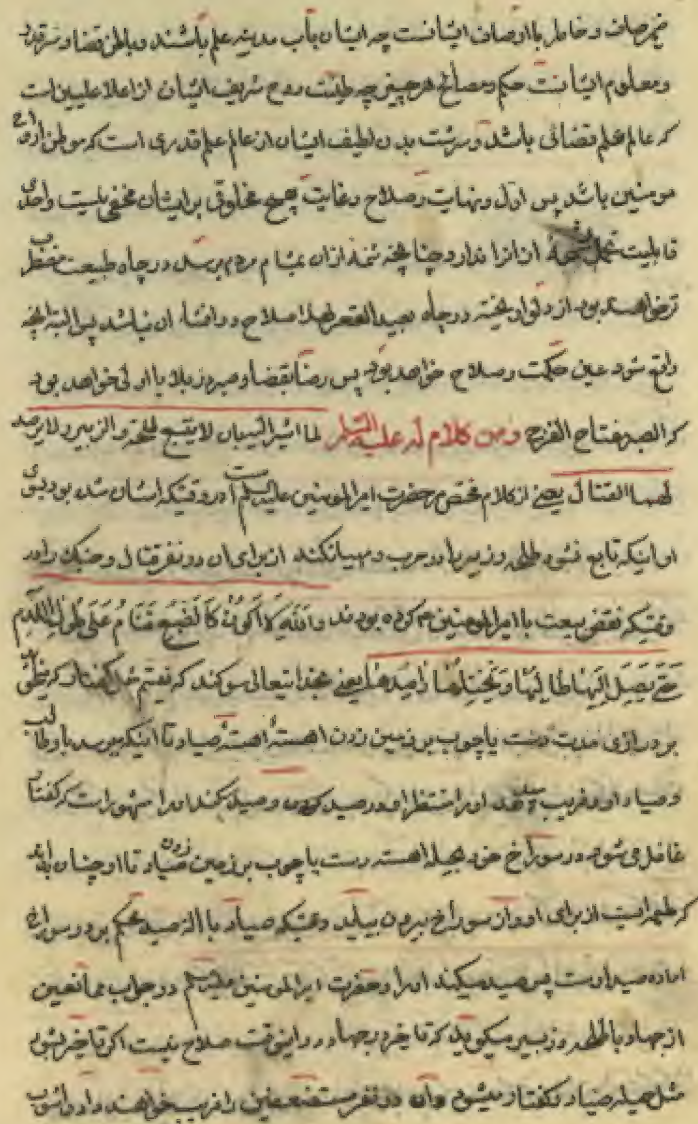 ضمیر صاف و خاطر با اوصاف ایشانست چه ایشان باب مدینه علم باشند و باطن قضا و سر قدر
و معلوم ایشانست حکم و مصالح هر چیزی چه طینت روح شریف ایشان از اعلا علیین است
که عالم علم قضائی باشد و سرشت بدن لطیف ایشان از عالم علم قدری است که موطن ارواح
مومنین باشد پس اول و نهایت و صلاح و غایت هیچ مخلوقی بر ایشان مخفی نیست واحدی
قابلیت تحمل از انرا ندارد و چنانچه شمه ازان بمشام مردم برسد در چاه طبیعت مضطرب
تر خواهند بود از دلو اویخته در چاه بعید القعر لهذا صلاح در افشاء ان نباشد پس البته انچه
واقع شود عین حکمت و صلاح خواهد بود پس رضا بقضا و صبر در بلا یا اولی خواهد بود
که الصبر مفتاح الفرج و من کلام له علیه السلام لما اشیر الیه بان لا یتبع طلحة و الزبیر و لا یرصد
لهما القتال یعنی از کلام مختص حضرت امیر المومنین علیه السلام است در وقتیکه اشاره شده بود بسوی
او اینکه تابع نشود طلحه و زبیر را در حرب و مهیا نکند از برای ان دو نفر قتال و جنک را در
وقتیکه نقض بیعت با امیر المومنین ع کرده بودند والله لا اکون کالضبع تنام علی طول اللدم
حتی یصل الیها طالبها و یختلها راصدها یعنی بخدایتعالی سوکند که نیستم مثل کفتار که بخوابد
بر درازی مدت دست یا چوب بر زمین زدن اهسته اهسته صیاد تا اینکه برسد باو طالب
و صیاد او و فریب دهد اورا منتظر او در صید کردن و صید بکند اورا مشهور است که کفتار
غافل می شود در سوراخ خود بحیله اهسته دست یا چوب بر زمین زدن صیاد تا او چنان بداند
که طعمه ایست از برای او و از سوراخ بیرون بیاید وقتیکه صیاد با اله صید محکم بر در سوراخ
اماده صید اوست پس صید میکند اورا و حضرت امیر المومنین علیه السلام در جواب ممانعین
از جهاد با طلحه و زبیر میکوید که تاخیر در جهاد در اینوقت صلاح نیست اکر تاخیر بشود
مثل حیله صیاد و کفتار میشود و ان دو نفر مستضعفین را فریب خواهند داد و اشوب